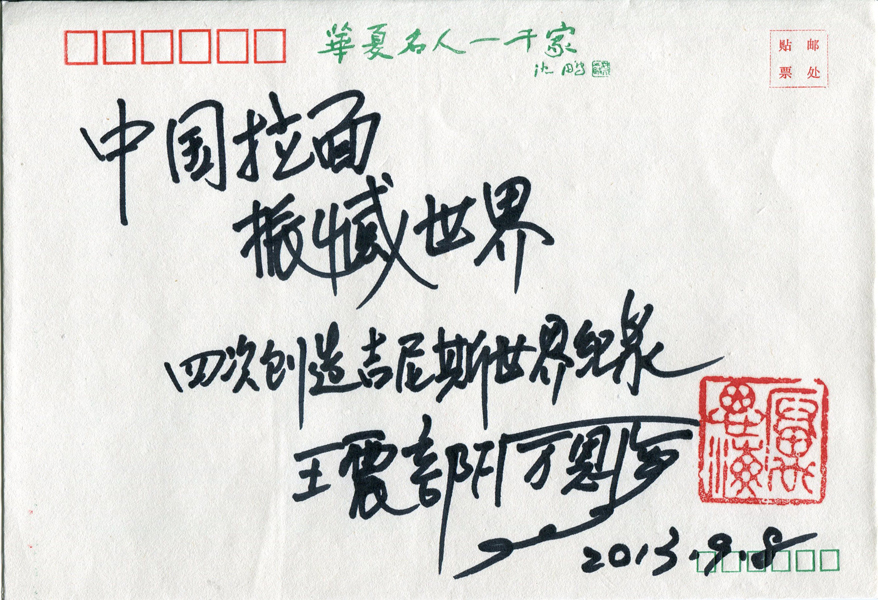 華夏名人一千家
沈鹏
贴邮
票处
中国拉面
振憾世界
四次创造吉尼斯世界纪录
王震部队厉恩海
2013.9.8